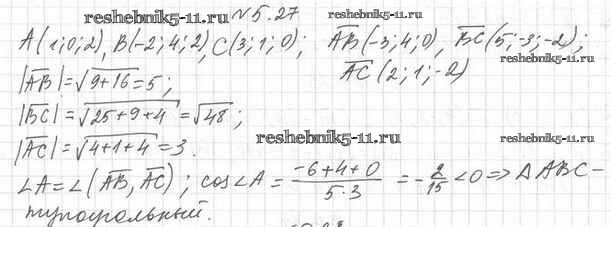 reshebnik5-11.ru №5.27 reshebnik5-11.ru
A(1;0;2), B(-2;4;2), C(3;1;0); AB(-3;4;0), BC(5;-3;-2);
|AB|=√9+16=5; AC(2;1;-2) reshebnik5-11.ru
|BC|=√25+9+4=√48;
reshebnik5-11.ru reshebnik5-11.ru
|AC|=√4+1+4=3.
∠A=∠(AB, AC); cos∠A= -6+4+0/5·3 = -2/15 <0 => ΔABC-
тупоугольный.